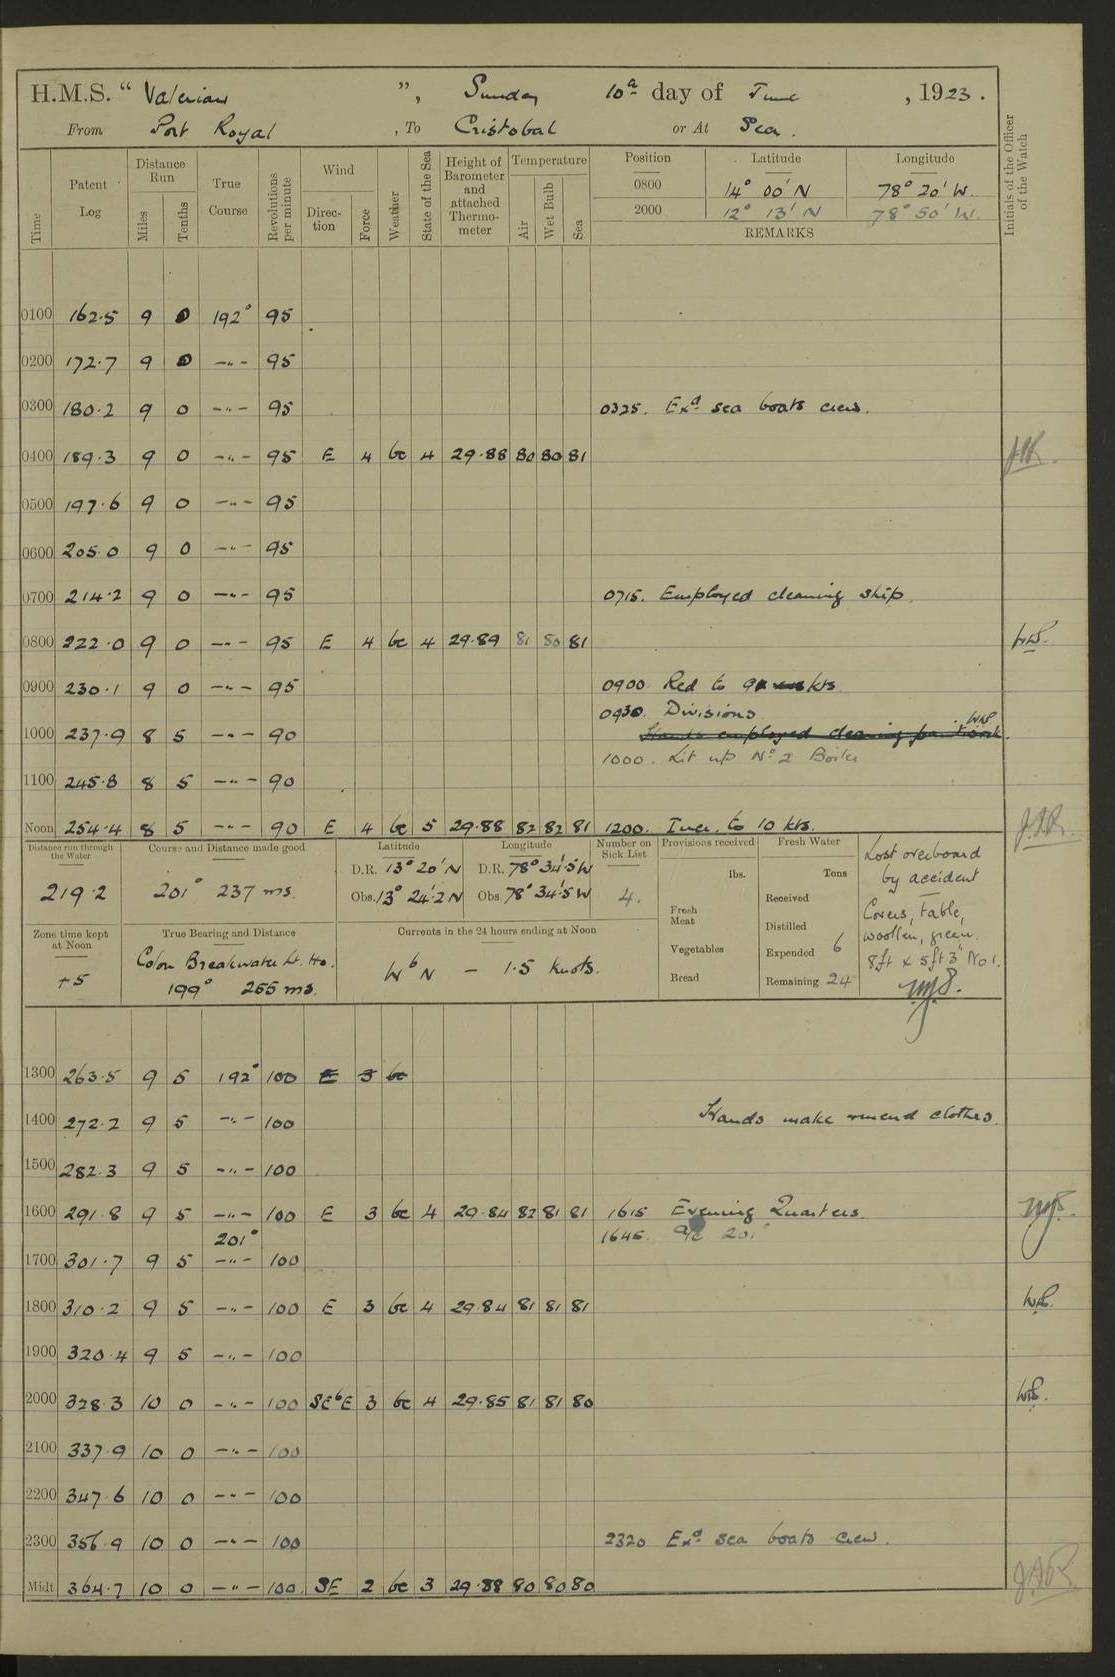 H.M.S. " Valerian ", Sunday 10th day of June, 1923.
From Port Royal, To Cristobal or At Sea.
Time Patent Log Distance Run Miles Tenths True Course Revolutions per minute Wind Direction Force Weather State of the Sea Height of Barometer and attached Thermometer Temperature Air Wet Bulb Sea Position Latitude Longitude Initials of the Officer of the Watch
0800 14° 00' N 78° 20' W.
2000 12° 13' N 78° 50' W.
REMARKS
0100 162.5 9 0 192° 95
0200 172.7 9 0 -"- 95
0300 180.2 9 0 -"- 95 0325. Exd sea boats crew.
0400 189.3 9 0 -"- 95 E 4 bc 4 29.88 80 80 81
0500 197.6 9 0 -"- 95
0600 205.0 9 0 -"- 95
0700 214.2 9 0 -"- 95 0715. Employed cleaning ship.
0800 222.0 9 0 -"- 95 E 4 bc 4 29.89 81 80 81
0900 230.1 9 0 -"- 95 0900 Red to 9 kts
0930. Divisions
1000 237.9 8 5 -"- 90 Hands employed cleaning paintwork.
1000. Lit up No 2 Boiler
1100 245.8 8 5 -"- 90
Noon 254.4 8 5 -"- 90 E 4 bc 5 29.88 82 82 81 1200. Incr. to 10 kts.
Distance run through the Water 219.2
Course and Distance made good 201° 237 ms.
Latitude D.R. 13° 20' N Obs. 13° 24'.2 N
Longitude D.R. 78° 34'.5 W Obs. 78° 34'.5 W
Number on Sick List 4.
Provisions received lbs.
Fresh Meat
Vegetables
Bread
Fresh Water Tons
Received
Distilled
Expended 6
Remaining 24
Lost overboard
by accident
Covers, table,
woollen, green.
8ft x 5ft 3" No 1.
Zone time kept at Noon +5
True Bearing and Distance Colon Breakwater Lt. Ho.
199° 255 ms.
Currents in the 24 hours ending at Noon
WbN - 1.5 knots.
1300 263.5 9 5 192° 100 E 3 bc
1400 272.2 9 5 -"- 100 Hands make & mend clothes.
1500 282.3 9 5 -"- 100
1600 291.8 9 5 -"- 100 E 3 bc 4 29.84 82 81 81 1615 Evening Quarters.
201° 1645. a/c 201°
1700 301.7 9 5 -"- 100
1800 310.2 9 5 -"- 100 E 3 bc 4 29.84 81 81 81
1900 320.4 9 5 -"- 100
2000 328.3 10 0 -"- 100 SEbE 3 bc 4 29.85 81 81 80
2100 337.9 10 0 -"- 100
2200 347.6 10 0 -"- 100
2300 356.9 10 0 -"- 100 2320 Exd sea boats crew.
Midt 364.7 10 0 -"- 100. SE 2 bc 3 29.88 80 80 80